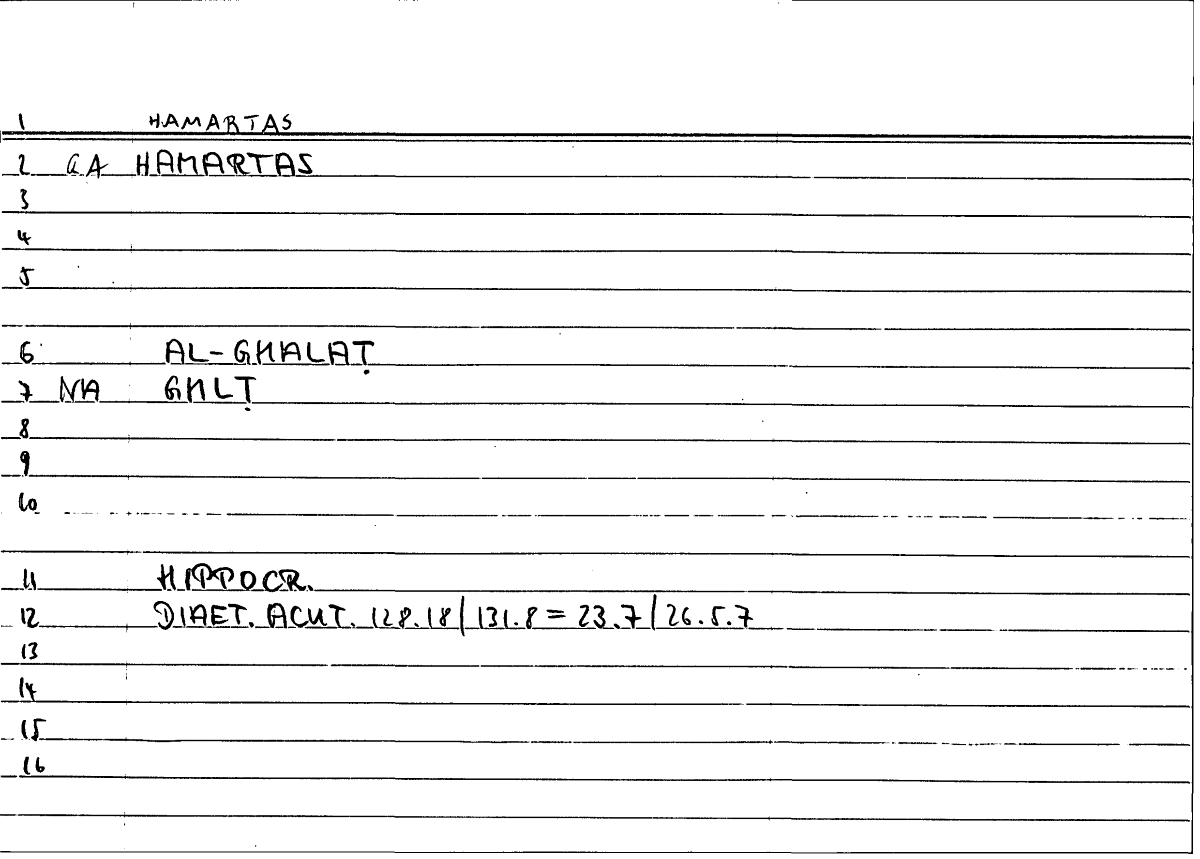 1 HAMARTAS
2 GA HAMARTAS
3
4
5
6 AL-GHALAṬ
7 NA GHLṬ
8
9
10
11 HIPPOCR.
12 DIAET. ACUT. 128.18/131.8 = 23.7/26.5.7
13
14
15
16